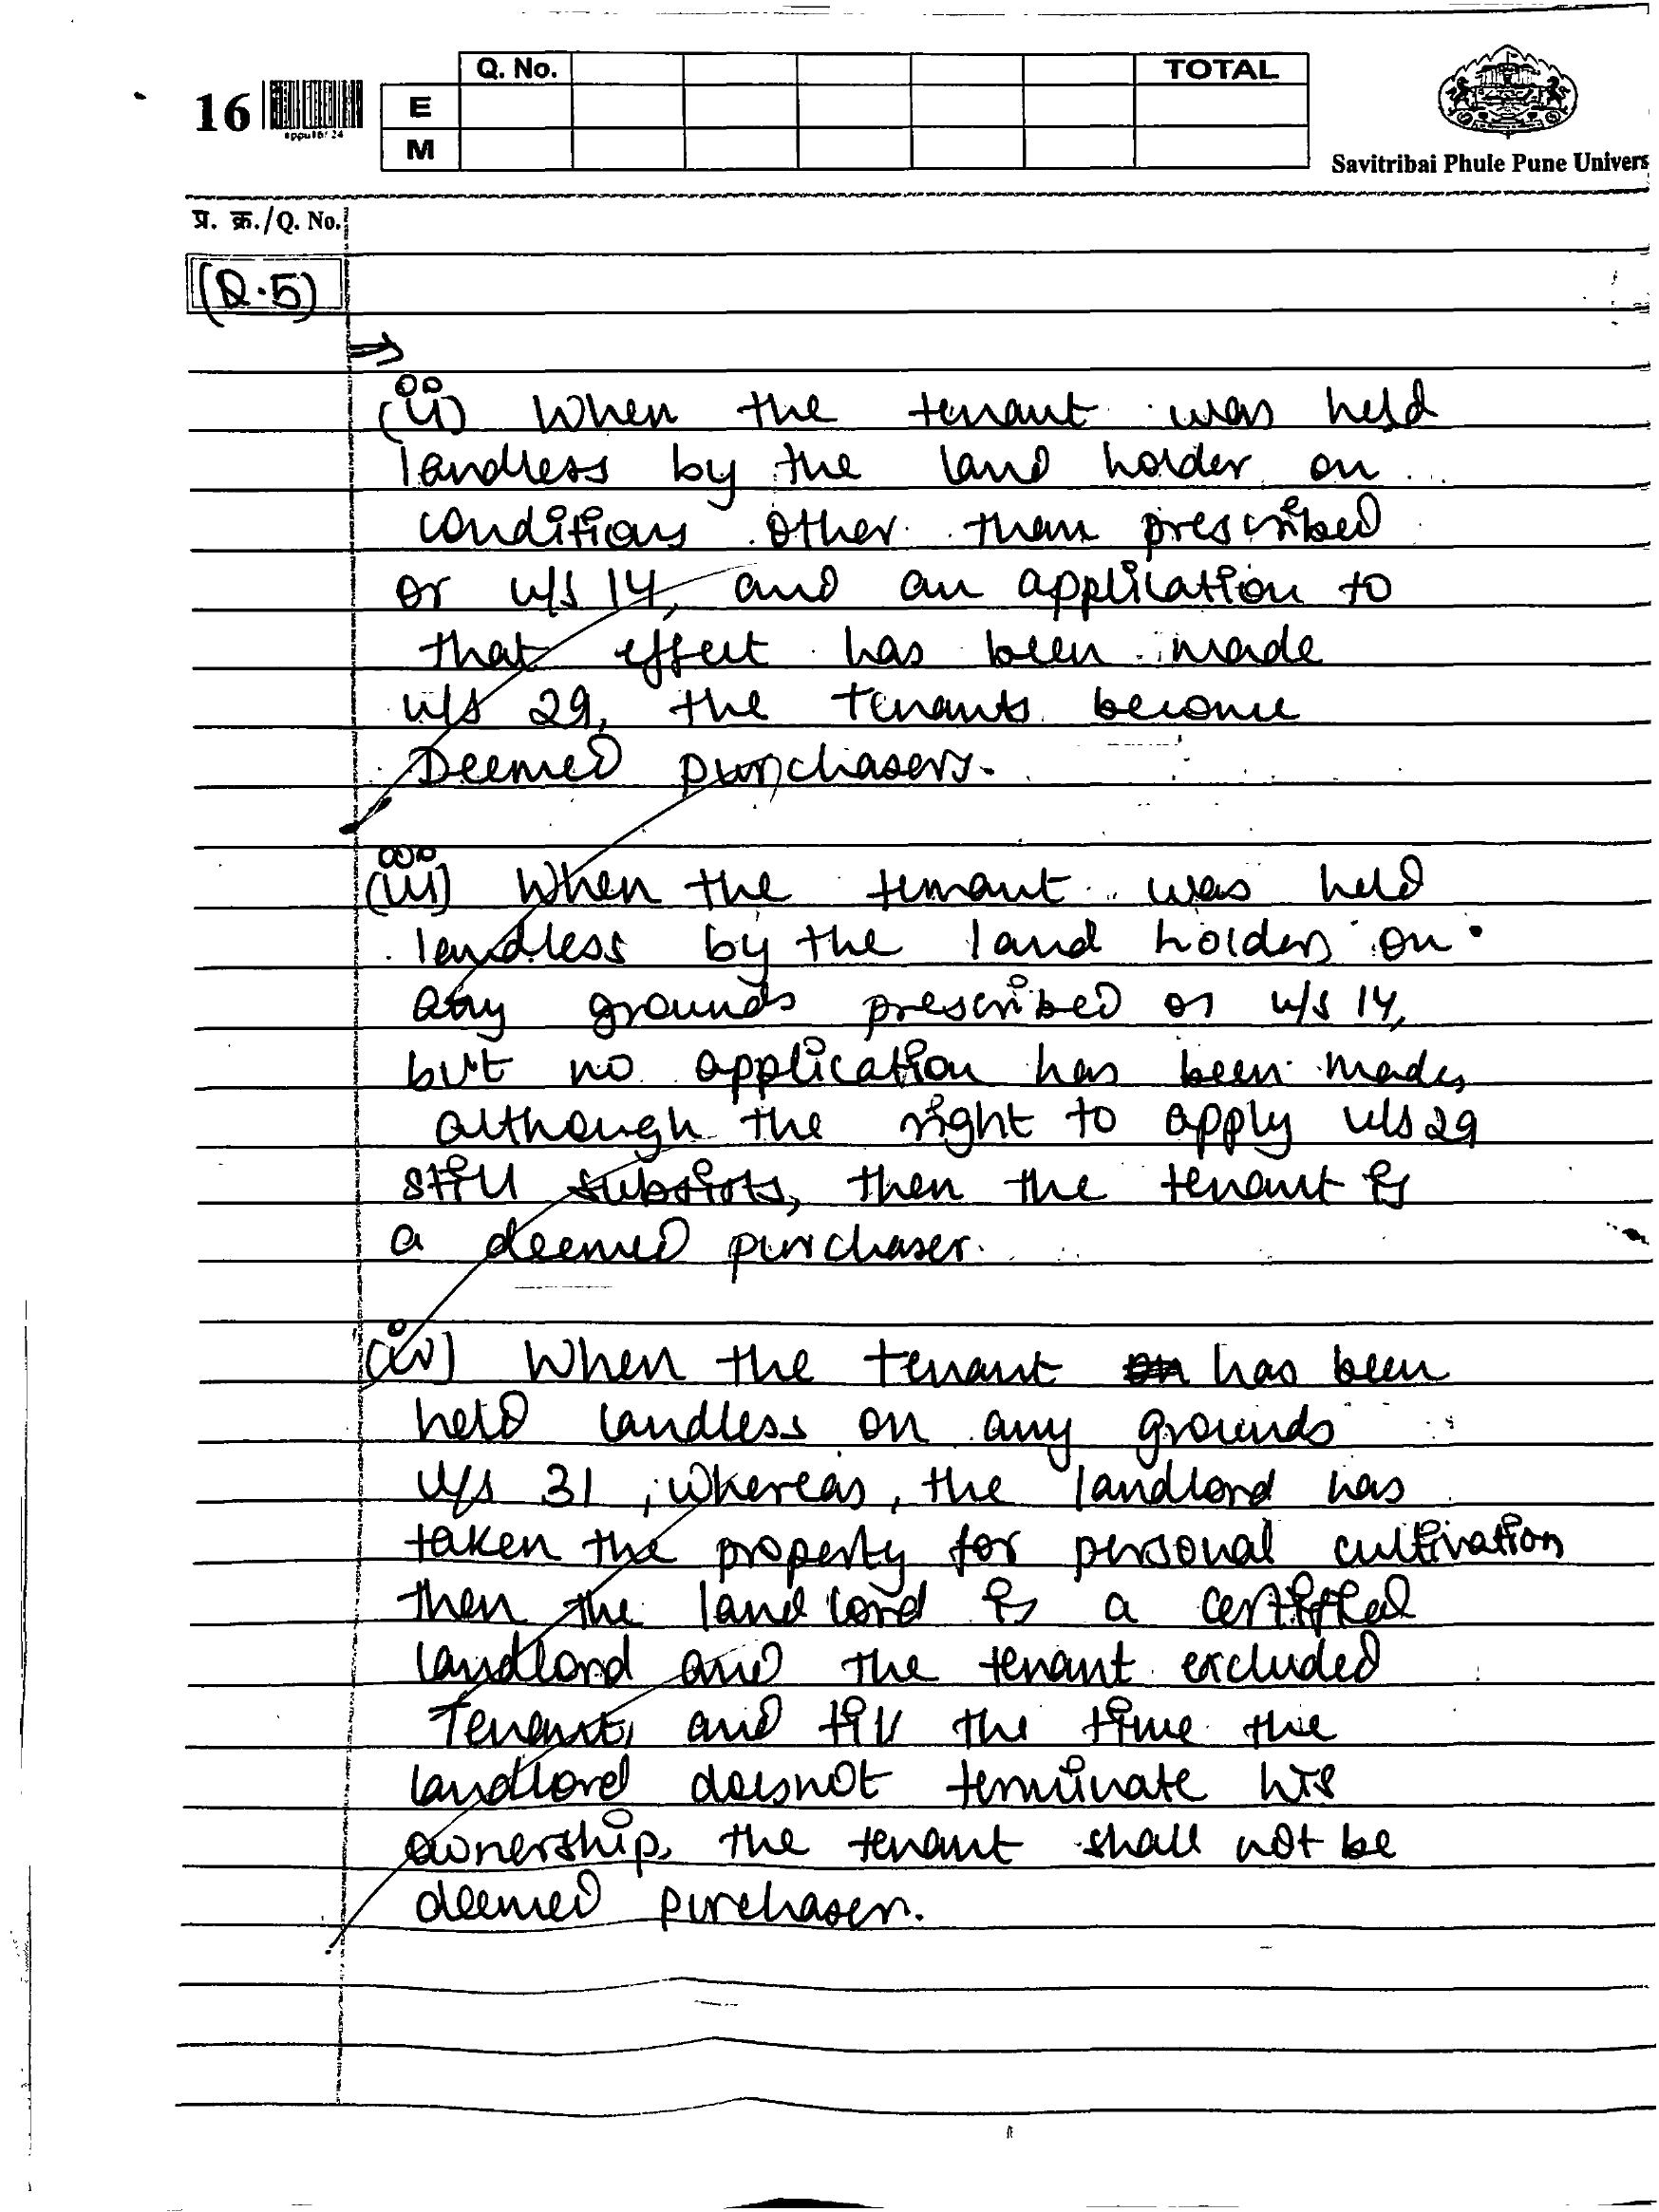 Q. No. TOTAL
16 E
sppu16f24
M
Savitribai Phule Pune Univers
प्र. क्र./Q. No.
(Q.5)
→
(ii) When the tenant was held
landless by the land holder on
conditions other than prescribed
or u/s 14, and an application to
that effect has been made
u/s 29, the tenants become
Deemed purchasers.
(iii) When the tenant was held
landless by the land holder on
any grounds prescribed or u/s 14,
but no application has been made,
although the right to apply u/s 29
still subsists, then the tenant is
a deemed purchaser.
(iv) When the tenant has been
held landless on any grounds
u/s 31, whereas, the landlord has
taken the property for personal cultivation
then the landlord is a certified
landlord and the tenant excluded
Tenant, and till the time the
landlord doesnot terminate his
ownership, the tenant shall not be
deemed purchaser.